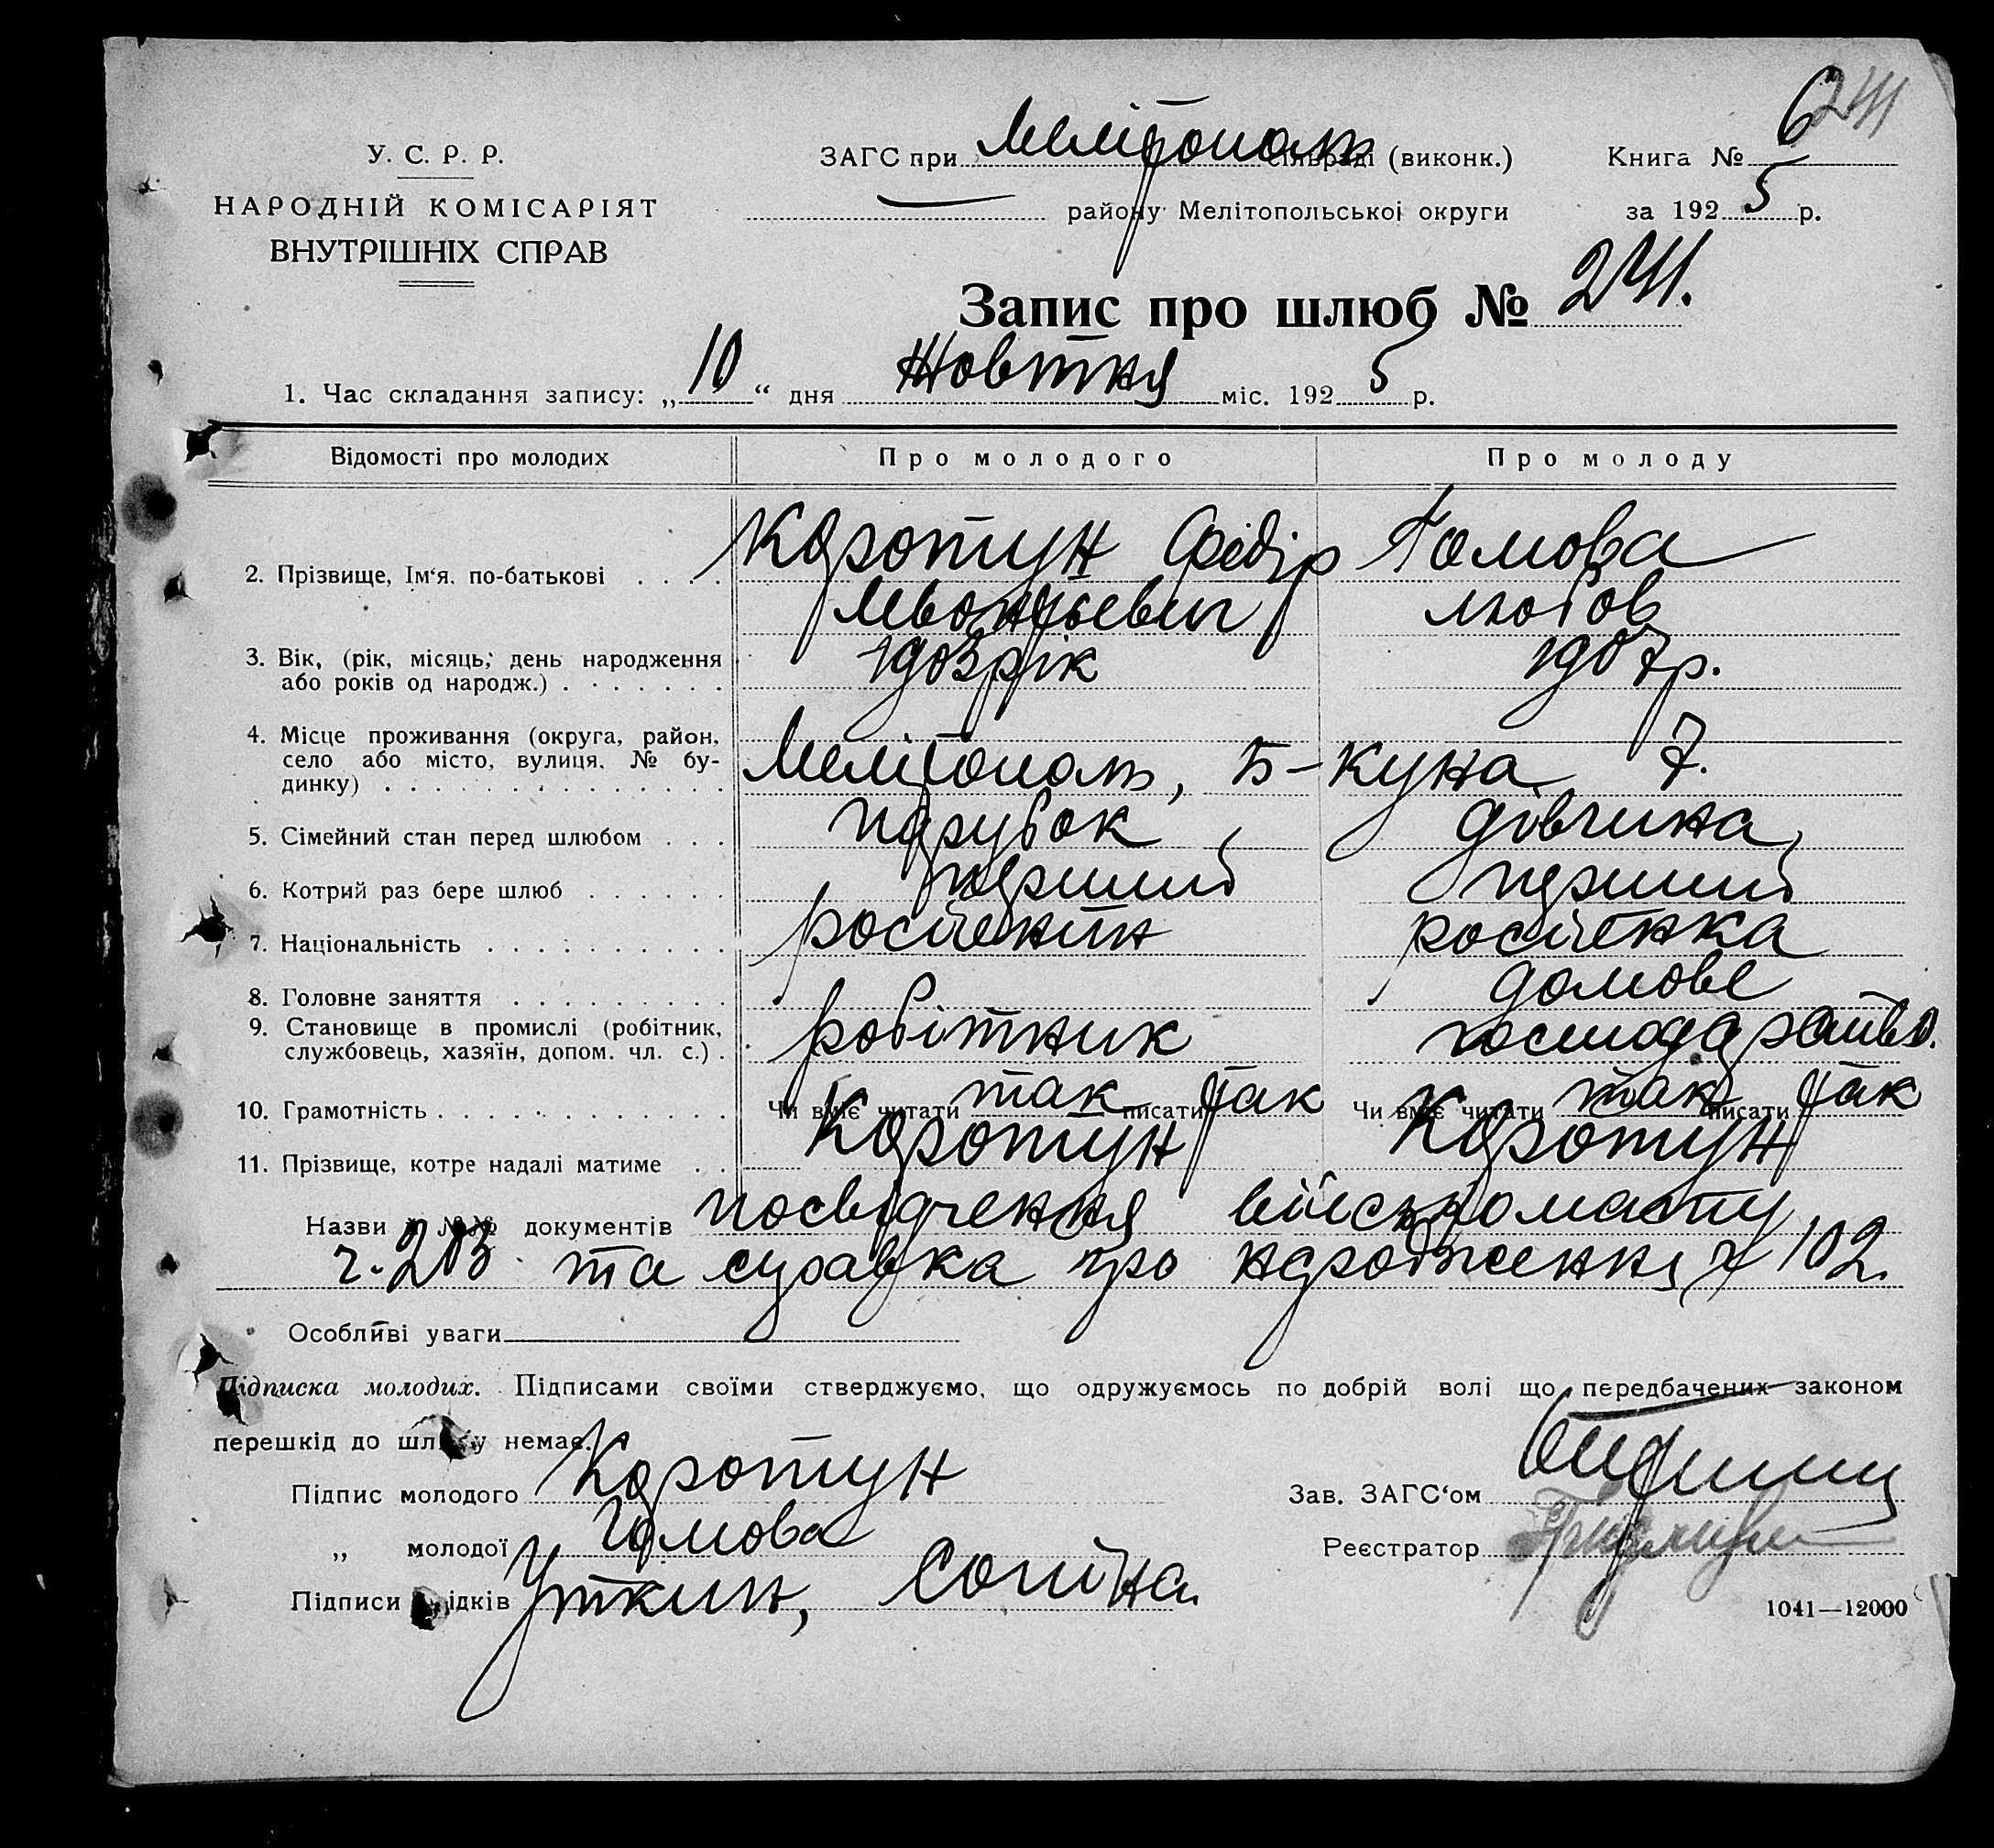 241
У. С. Р. Р.
НАРОДНІЙ КОМІСАРІЯТ
ВНУТРІШНІХ СПРАВ
ЗАГС при Мелітополь сільраді (виконк.)
Книга № 6
— району Мелітопольської округи
за 1925 р.
Запис про шлюб № 241.
1. Час складання запису: „10“ дня Жовтня міс. 1925 р.
Відомості про молодих Про молодого Про молоду
2. Прізвище, Ім‘я, по-батькові . . . . Коротун Федір Гомова
Любов
3. Вік, (рік, місяць, день народження 1903 рік 1907 р.
або років од народж.) . . . . . . .
4. Місце проживання (округа, район,
село або місто, вулиця, № бу- Мелітополь, Б-Куна 7.
динку) . . . . . . . . . . . . . .
5. Сімейний стан перед шлюбом . . . парубок дівчина
6. Котрий раз бере шлюб . . . . . . перший перший
7. Національність . . . . . . . . . .
8. Головне заняття . . . . . . . . . домове
9. Становище в промислі (робітник, робітник
службовець, хазяїн, допом. чл. с.) .
10. Грамотність . . . . . . . . . . . . Чи вміє читати так писати так Чи вміє читати так писати так
11. Прізвище, котре надалі матиме . . Коротун Коротун
Назви й №№ документів посвідчення військомату
ч. 203 та справка про народження ч 102.
Особливі уваги
Підписка молодих. Підписами своїми стверджуємо, що одружуємось по добрій волі що передбачених законом
перешкід до шлюбу немає.
Підпис молодого Коротун
Зав. ЗАГС‘ом
„ молодої Гомова
Реєстратор
Підписи свідків Уткин,
1041—12000